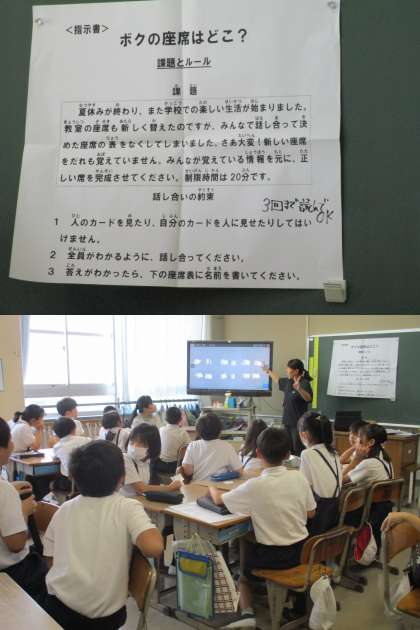 <指示書>
ボクの座席はどこ？
課題とルール
課題
夏休みが終わり、また学校での楽しい生活が始まりました。
教室の座席も新しく替えたのですが、みんなで話し合って決
めた座席の表をなくしてしまいました。さあ大変！新しい座席
をだれも覚えていません。みんなが覚えている情報を元に、正
しい席を完成させてください。制限時間は20分です。
話し合いの約束
3回まで読んで
OK
1 人のカードを見たり、自分のカードを人に見せたりしてはい
けません。
2 全員がわかるように、話し合ってください。
3 答えがわかったら、下の座席表に名前を書いてください。
ボクの座席はどこ？